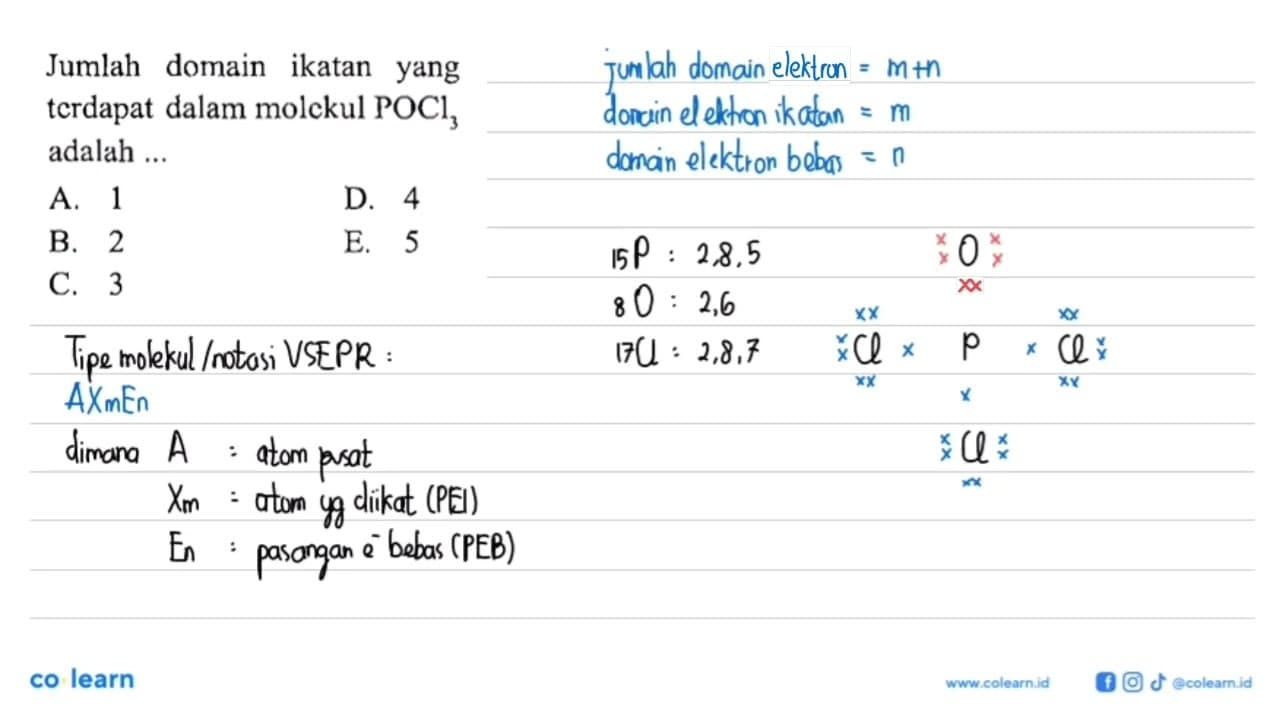 Jumlah domain ikatan yang
terdapat dalam molekul POCl3
adalah ...
A. 1
D. 4
B. 2
E. 5
C. 3
jumlah domain elektron = m+n
domain elektron ikatan = m
domain elektron bebas = n
15P : 2,8,5
8O : 2,6
17Cl : 2,8,7
x x O x x
xx
xx xx
x x Cl x P x Cl x x
xx x xx
x x Cl x x
xx
Tipe molekul/notasi VSEPR :
AXmEn
dimana A : atom pusat
Xm : atom yg diikat (PEI)
En : pasangan e- bebas (PEB)
co learn
www.colearn.id
@colearn.id